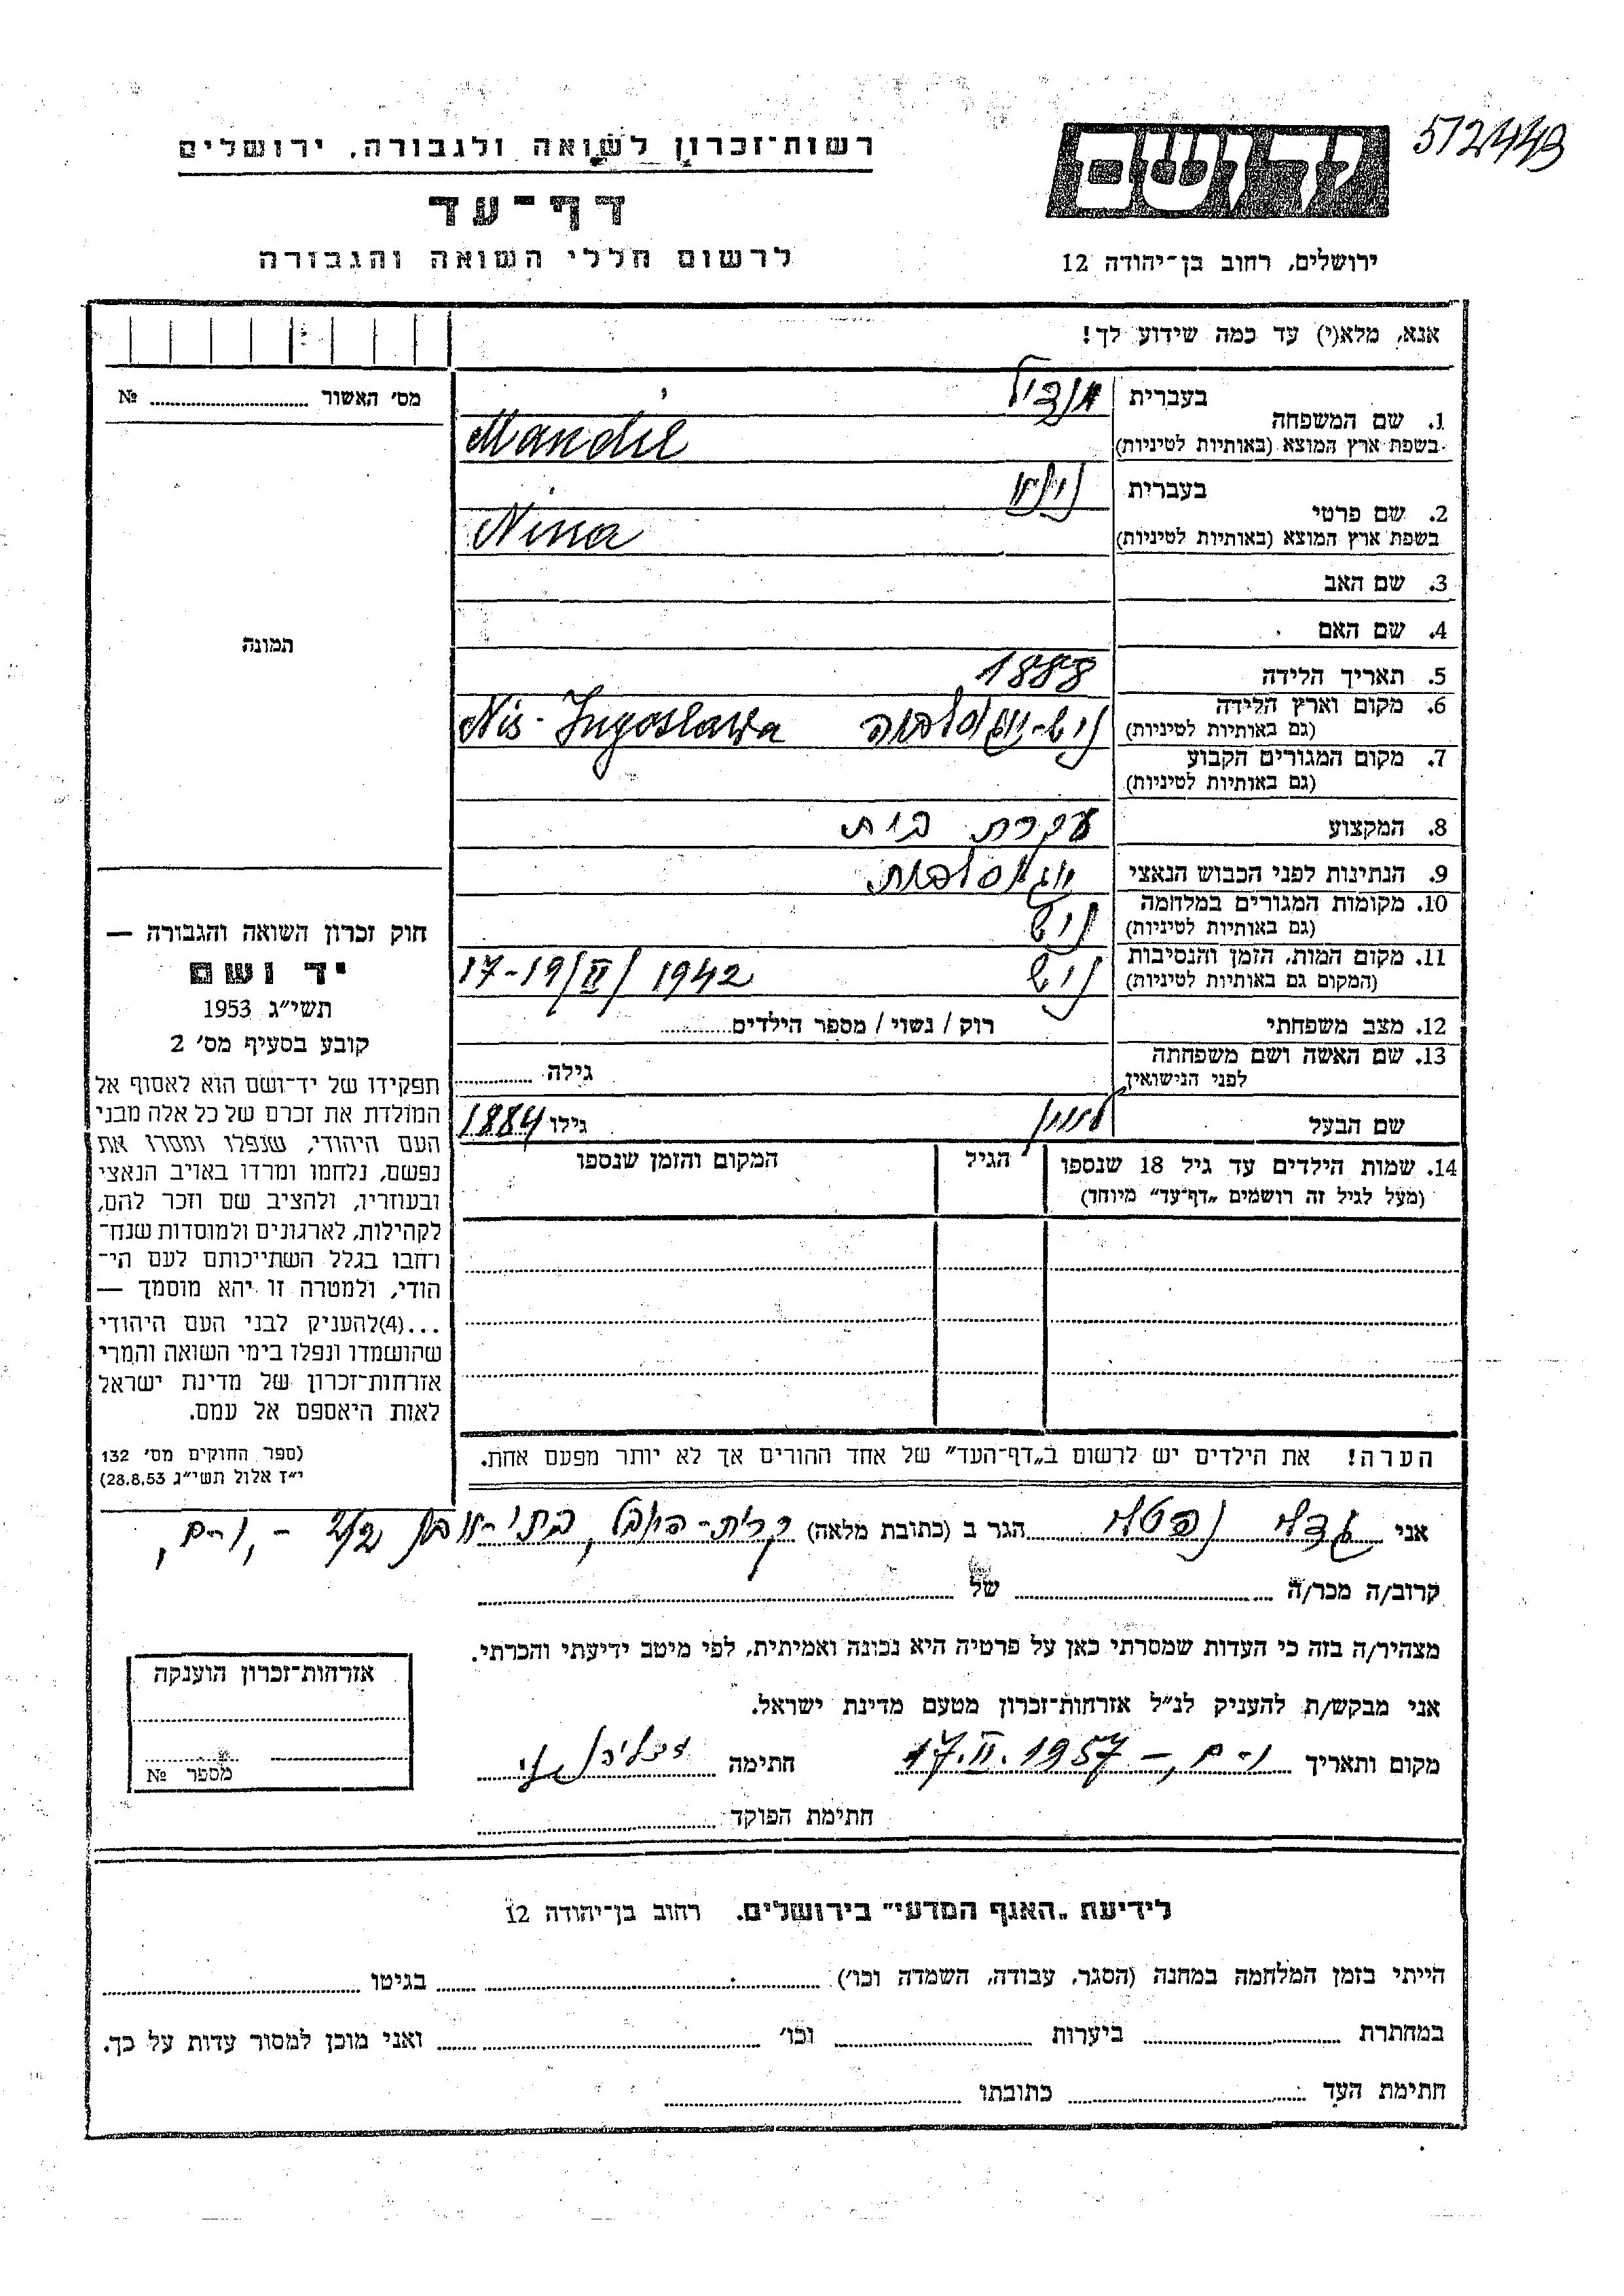 512449
רשות־זכרון לשואה ולגבורה, ירושלים
דף־עד
לרשום חללי השואה והגבורה
יד ושם
ירושלים, רחוב בן־יהודה 12
אנא, מלא(י) עד כמה שידוע לך!
מס׳ האשור ........ №
תמונה
חוק זכרון השואה והגבורה —
יד ושם
תשי״ג 1953
קובע בסעיף מס׳ 2
תפקידו של יד־ושם הוא לאסוף אל
המולדת את זכרם של כל אלה מבני
העם היהודי, שנפלו ומסרו את
נפשם, נלחמו ומרדו באויב הנאצי
ובעוזריו, ולהציב שם וזכר להם,
לקהילות, לארגונים ולמוסדות שנח־
רחבו בגלל השתייכותם לעם הי־
הודי, ולמטרה זו יהא מוסמך —
...(4)להעניק לבני העם היהודי
שהושמדו ונפלו בימי השואה והמרי
אזרחות־זכרון של מדינת ישראל
לאות היאספם אל עמם.
(ספר החוקים מס׳ 132
י״ז אלול תשי״ג 28.8.53)
1. שם המשפחה
בעברית מנדיל
בשפת ארץ המוצא (באותיות לטיניות) Mandil
2. שם פרטי
בעברית נינה
בשפת ארץ המוצא (באותיות לטיניות) Nina
3. שם האב
4. שם האם
5. תאריך הלידה 1888
6. מקום וארץ הלידה
(גם באותיות לטיניות) ניש-יוגוסלביה Nis - Jugoslawia
7. מקום המגורים הקבוע
(גם באותיות לטיניות)
8. המקצוע עקרת בית
9. הנתינות לפני הכבוש הנאצי יוגוסלבית
10. מקומות המגורים במלחמה
(גם באותיות לטיניות) ניש
11. מקום המות, הזמן והנסיבות
(המקום גם באותיות לטיניות) ניש 17-19/II/1942
12. מצב משפחתי רוק / נשוי / מספר הילדים
13. שם האשה ושם משפחתה
לפני הנישואין גילה
שם הבעל גילו 1884
14. שמות הילדים עד גיל 18 שנספו הגיל המקום והזמן שנספו
(מעל לגיל זה רושמים „דף־עד״ מיוחד)
הערה! את הילדים יש לרשום ב„דף־העד״ של אחד ההורים אך לא יותר מפעם אחת.
אני הגר ב (כתובת מלאה) קרית-היובל, בתי-
קרוב/ה מכר/ה של
מצהיר/ה בזה כי העדות שמסרתי כאן על פרטיה היא נכונה ואמיתית, לפי מיטב ידיעתי והכרתי.
אני מבקש/ת להעניק לנ״ל אזרחות־זכרון מטעם מדינת ישראל.
מקום ותאריך י-ם, – 17.II.1957 חתימה
חתימת הפוקד
אזרחות־זכרון הוענקה
מספר №
לידיעת „האגף המדעי״ בירושלים. רחוב בן־יהודה 12
הייתי בזמן המלחמה במחנה (הסגר, עבודה, השמדה וכו׳) בגיטו
במחתרת ביערות וכו׳ ואני מוכן למסור עדות על כך.
חתימת העד כתובתו